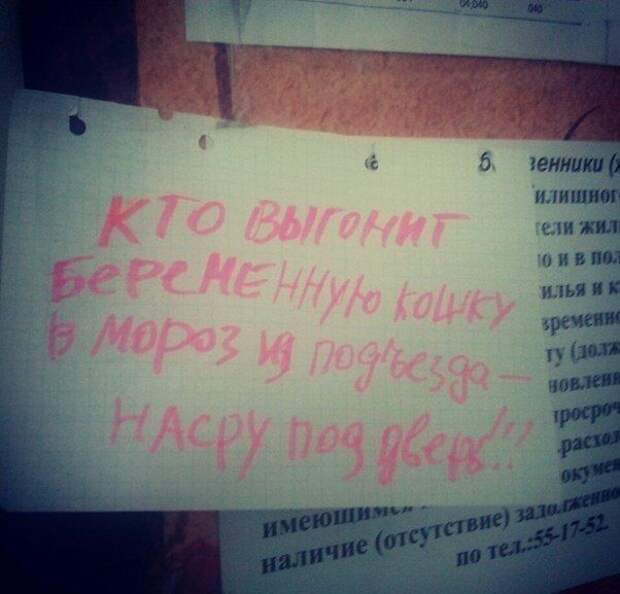 04,040 040
КТО ВЫГОНИТ
БЕРЕМЕННУЮ КОШКУ
В МОРОЗ ИЗ ПОДЪЕЗДА —
НАСРУ ПОД ДВЕРЬ!!!
б.
венники (
илищног
ели жил
о и в пол
илья и к
временн
ту (долж
новлен
просроч
расхо
окумен
имеющим
наличие (отсутствие) задолженно
по тел.:55-17-52.